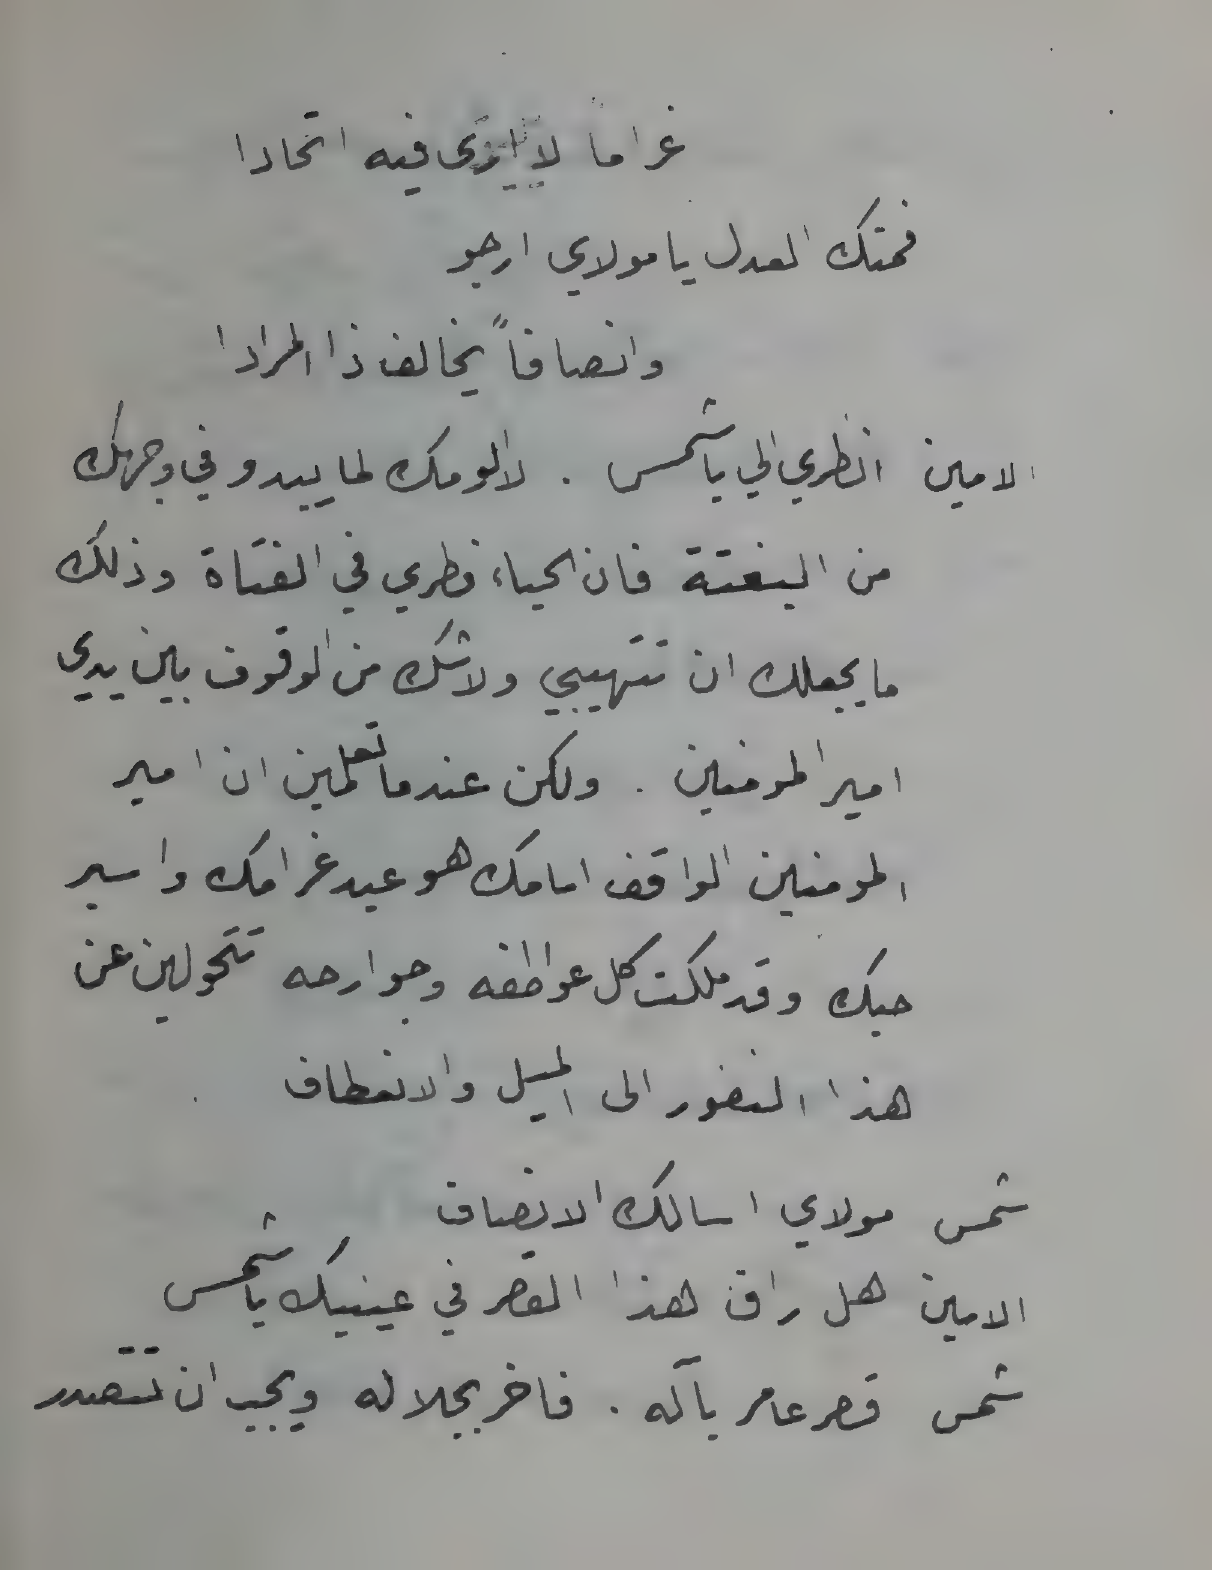 غراما لا ارى فيه اتحادا
فمتك العدل يا مولاي ارجو
وانصافاً يخالف ذا المرادا
الامين انظري الي يا شمس . لا الومك لما يبدو في وجهك
من البغتة فان الحياء فطري في الفتاة وذلك
ما يجعلك ان تتهيبي ولا شك من الوقوف بين يدي
امير المومنين . ولكن عندما تعلمين ان امير
المومنين الواقف امامك هو عبد غرامك واسير
حبك وقد ملكت كل عواطفه وجوارحه تتحولين عن
هذا النفور الى الميل والانعطاف
شمس مولاي اسالك الانصاف
الامين هل راق هذا القصر في عينيك يا شمس
شمس قصر عامر بآله . فاخر بجلاله ويجب ان تتصدر